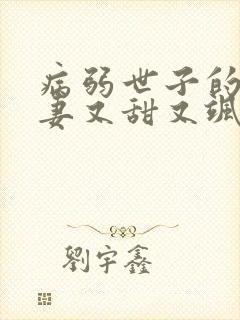 病弱世子的
妻又甜又飒
劉宇鑫